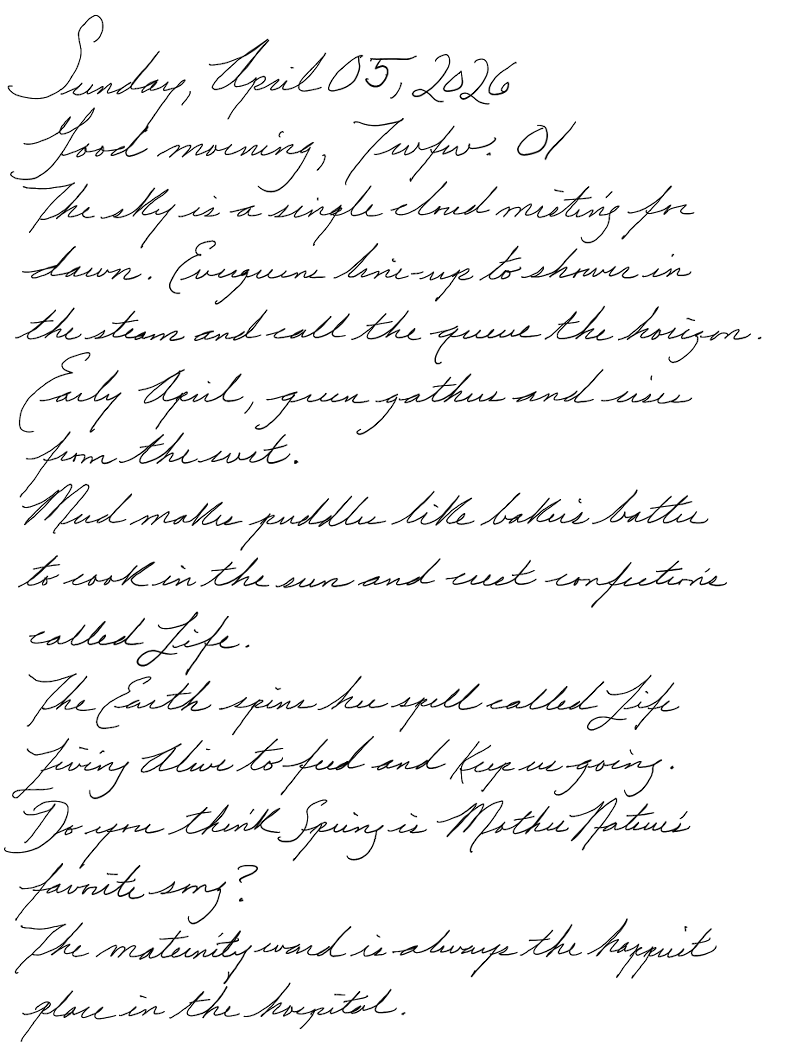 Sunday, April 05, 2026
Good morning, Twfw. 01
The sky is a single cloud misting for
dawn. Evergreens line-up to shower in
the steam and call the queue the horizon.
Early April, green gathers and rises
from the wet.
Mud makes puddles like baker's batter
to cook in the sun and erect confections
called Life.
The Earth spins her spell called Life
Living Alive to feed and keep us going.
Do you think Spring is Mother Nature's
favorite song?
The maternity ward is always the happiest
place in the hospital.